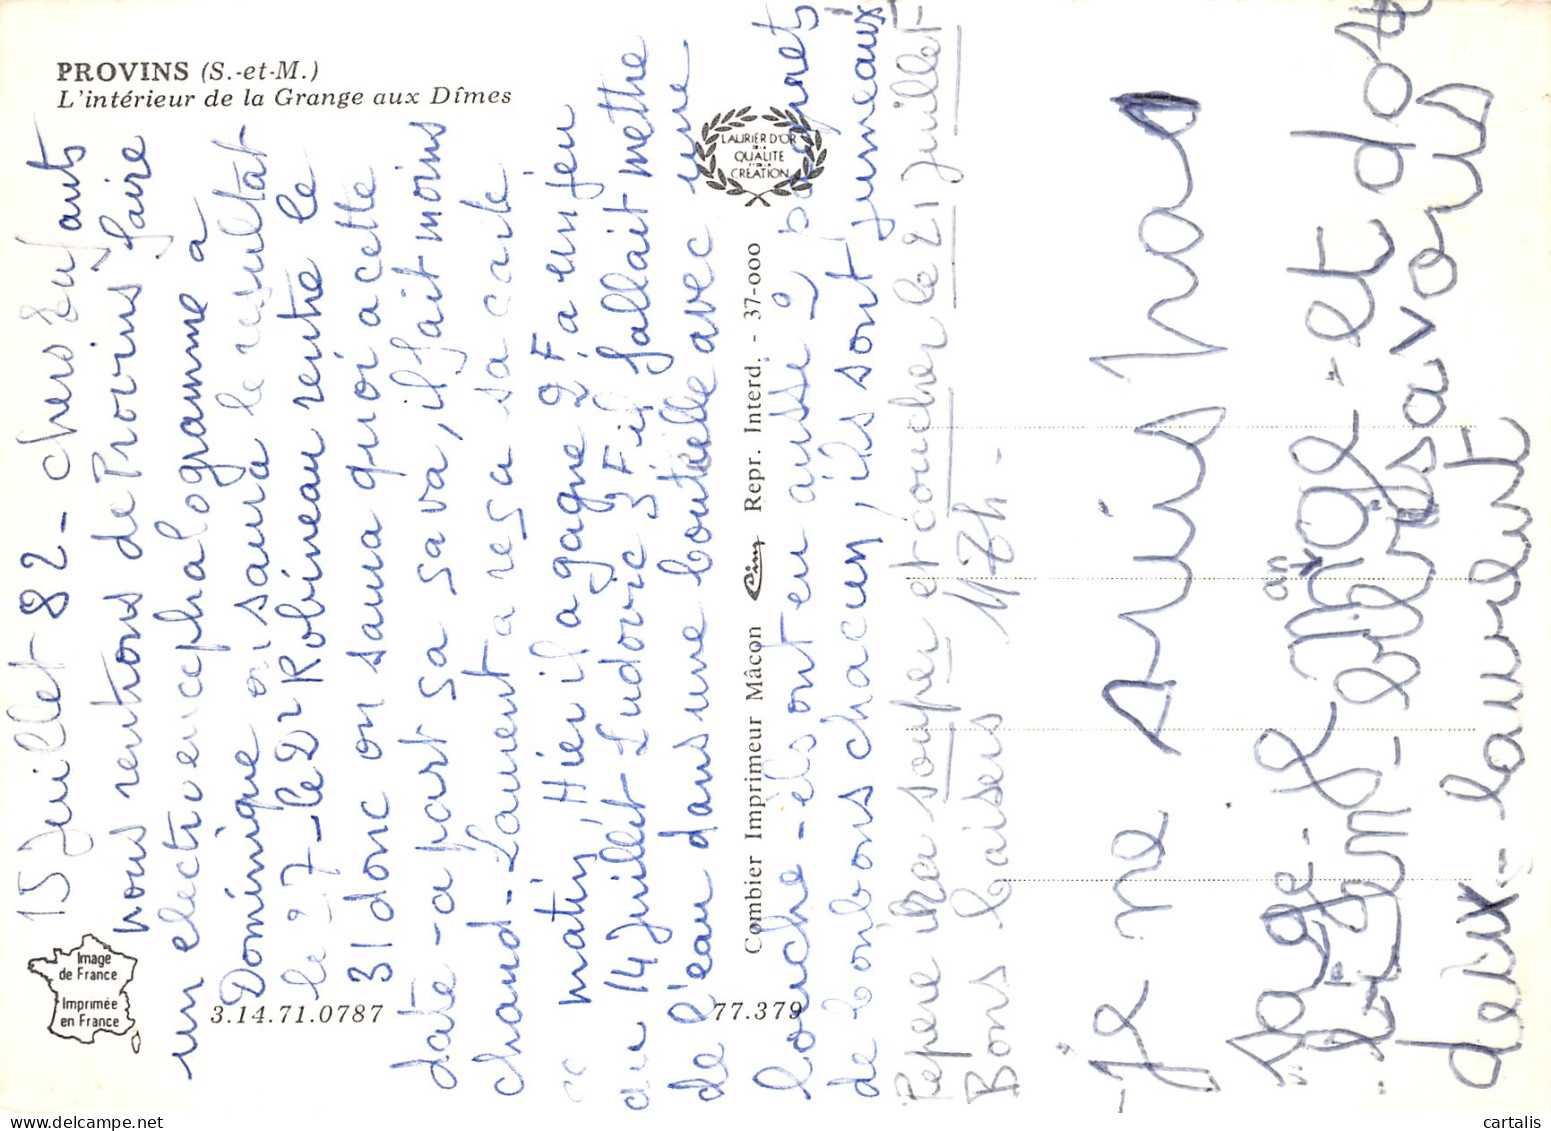 PROVINS (S.-et-M.)
L'intérieur de la Grange aux Dîmes
LAURIER D'OR
DE LA
QUALITE
ET DE LA
CREATION
Image
de France
Imprimée
en France
3.14.71.0787
77.379
Combier Imprimeur Mâcon Cim Repr. Interd. - 37-000
15 Juillet 82 - chers Enfants
nous rentrons de Provins faire
un electroencephalogramme à
Dominique on saura le resultat
le 27 - le Dr Robineau rentre le
31 donc on saura quoi a cette
date - a part sa sa va, il fait moins
chaud - Laurent a reçu sa carte
ce matin, Hier il a gagne 2F a un jeu
au 14 Juillet Ludovic 3F il fallait mettre
de l'eau dans une bouteille avec une
louche - ils ont eu aussi 2 paquets
de bonbons chacun, ils sont jumeaux
Pepere ira souper et coucher le 21 juillet -
Bons baisers 17h -
- Je ne suis pas
sage -
et dort
savoris
deux - laurent